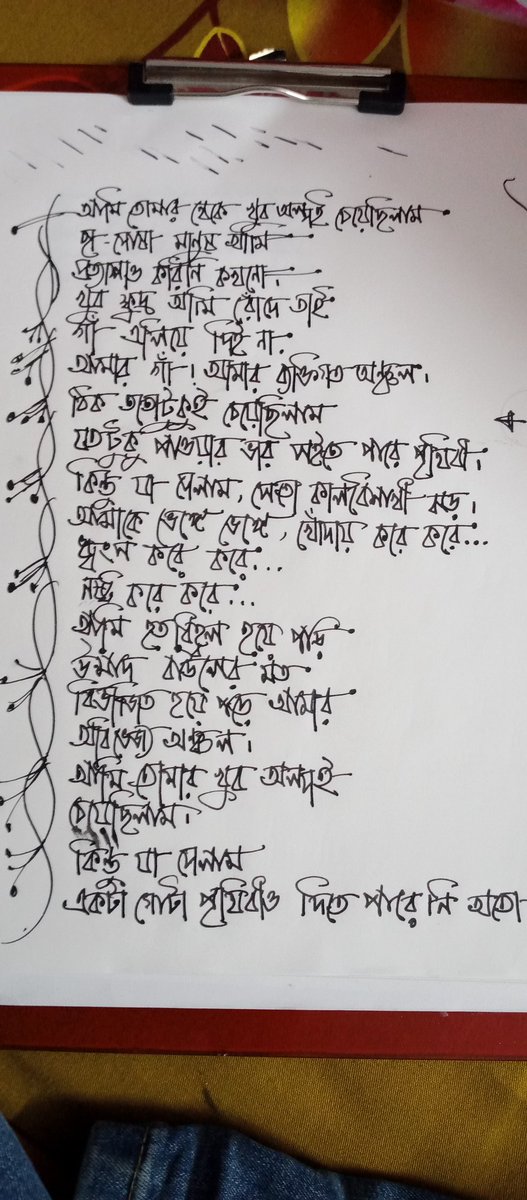 আমি তোমার থেকে খুব অল্পই চেয়েছিলাম
ছা-পোষা মানুষ আমি
প্রত্যাশাও করিনি কখনো।
খুব ক্ষুদ্র আমি রোদে তাই
গাঁ এলিয়ে দিই না।
আমার গাঁ। আমার ব্যক্তিগত অঞ্চল।
ঠিক ততোটুকুই চেয়েছিলাম
যতটুকু পাওয়ার ভার সইতে পারে পৃথিবী।
কিন্তু যা পেলাম, সেতো কালবৈশাখী ঝড়।
আমাকে ভেঙ্গে ভেঙ্গে, খোঁদায় করে করে...
ধ্বংস করে করে...
নষ্ট করে করে...
আমি হতবিহ্বল হয়ে পড়ি
উন্মাদ বাউলের মত
বিভাজিত হয়ে পড়ে আমার
অবিভেজ্য অঞ্চল।
আমি তোমার খুব অল্পই
চেয়েছিলাম।
কিন্তু যা পেলাম
একটা গোটা পৃথিবীও দিতে পারে নি অতো